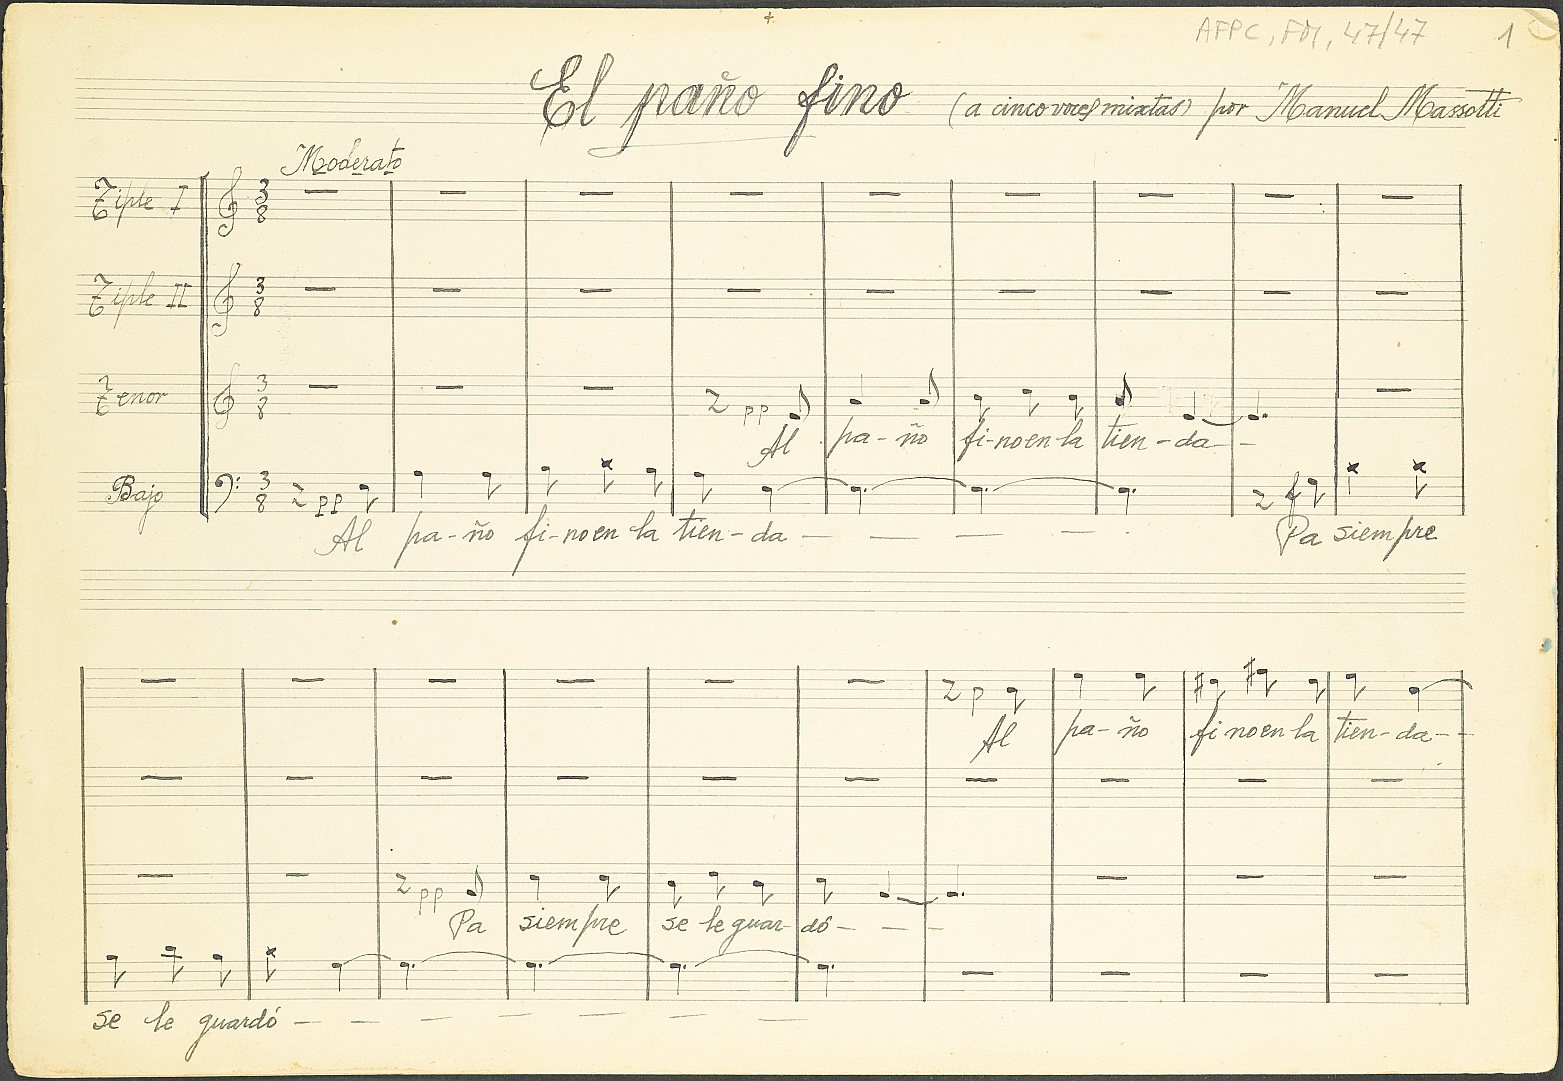 AFPC, FM, 47/47 1
El paño fino (a cinco voces mixtas) por Manuel Massotti
Moderato
Tiple I 3 8
Tiple II 3 8
Tenor 3 8 pp
Al pa-ño fi-no en la tien-da--
Bajo 3 8 pp f
Al pa-ño fi-no en la tien-da — — — — Pa siempre
p
Al pa-ño fi no en la tien-da--
pp
Pa siempre se le guar-dó- - -
se le guardó — — — — — — — —